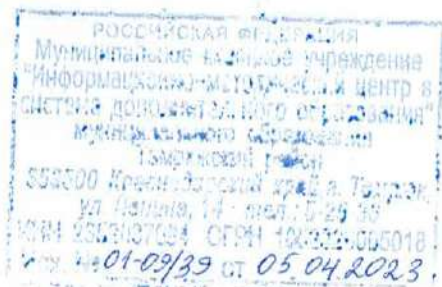 РОССИЙСКАЯ ФЕДЕРАЦИЯ
Муниципальное казенное учреждение
"Информационно-методический центр в
система дополнительного образования"
муниципального образования
Темрюкский район
353500 Краснодарский край г. Темрюк,
ул. Ленина, 14 тел.: 5-26
ИНН ОГРН
Исх. № 01-09/39 от 05.04.2023.